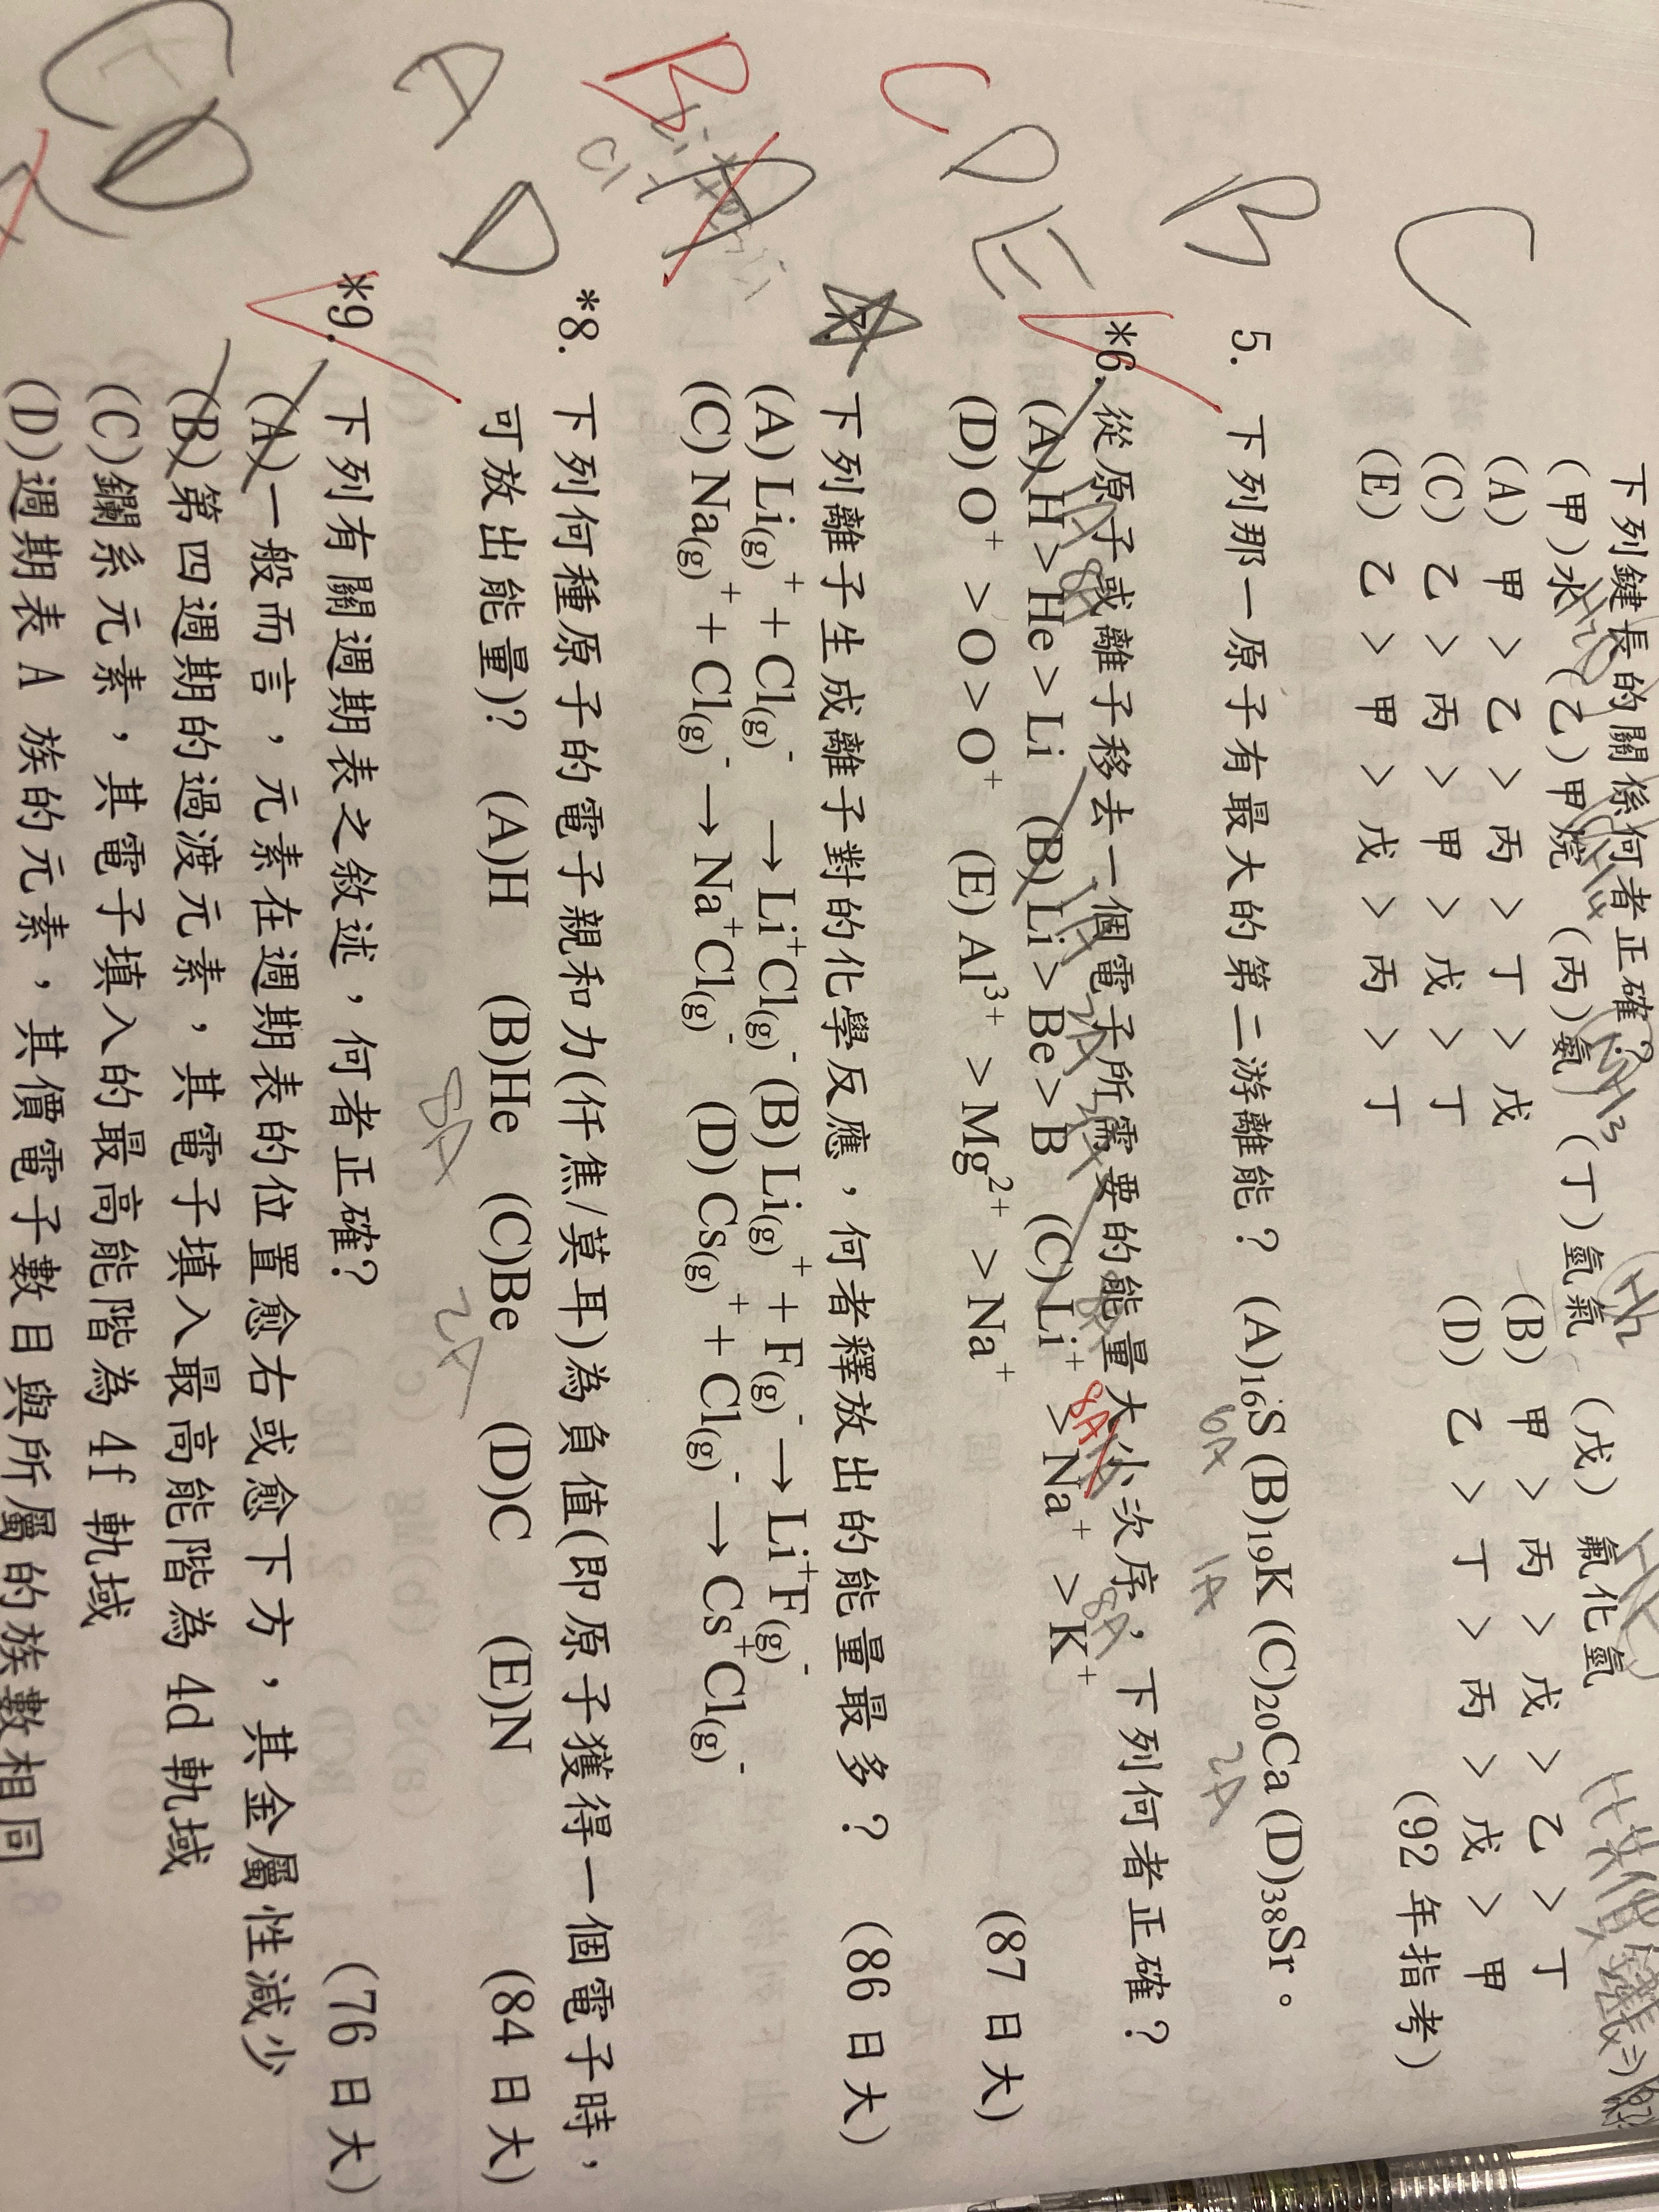 下列鍵長的關係何者正確？
(甲)水 (乙)甲烷 (丙)氨 (丁)氫氣 (戊) 氟化氫
(A) 甲 > 乙 > 丙 > 丁 > 戊 (B) 甲 > 丙 > 戊 > 乙 > 丁
(C) 乙 > 丙 > 甲 > 戊 > 丁 (D) 乙 > 丁 > 丙 > 戊 > 甲
(E) 乙 > 甲 > 戊 > 丙 > 丁 (92 年指考)
C
5. 下列那一原子有最大的第二游離能？ (A)₁₆S (B)₁₉K (C)₂₀Ca (D)₃₈Sr。
B
6A 1A 2A
*6. 從原子或離子移去一個電子所需要的能量大小次序，下列何者正確？
(A) H > He > Li (B) Li > Be > B (C) Li⁺ > Na⁺ > K⁺
(D) O⁺ > O > O⁺ (E) Al³⁺ > Mg²⁺ > Na⁺ (87 日大)
C D E
下列離子生成離子對的化學反應，何者釋放出的能量最多？ (86 日大)
(A) Li(g)⁺ + Cl(g)⁻ → Li⁺Cl(g)⁻ (B) Li(g)⁺ + F(g)⁻ → Li⁺F(g)⁻
(C) Na(g)⁺ + Cl(g)⁻ → Na⁺Cl(g)⁻ (D) Cs(g)⁺ + Cl(g)⁻ → Cs⁺Cl(g)⁻
B
*8. 下列何種原子的電子親和力(仟焦/莫耳)為負值(即原子獲得一個電子時，
可放出能量)? (A)H (B)He (C)Be (D)C (E)N (84 日大)
A D
8A 2A
*9. 下列有關週期表之敘述，何者正確？ (76 日大)
(A)一般而言，元素在週期表的位置愈右或愈下方，其金屬性減少
(B)第四週期的過渡元素，其電子填入最高能階為 4d 軌域
(C)鑭系元素，其電子填入的最高能階為 4f 軌域
(D)週期表 A 族的元素，其價電子數目與所屬的族數相同
C D